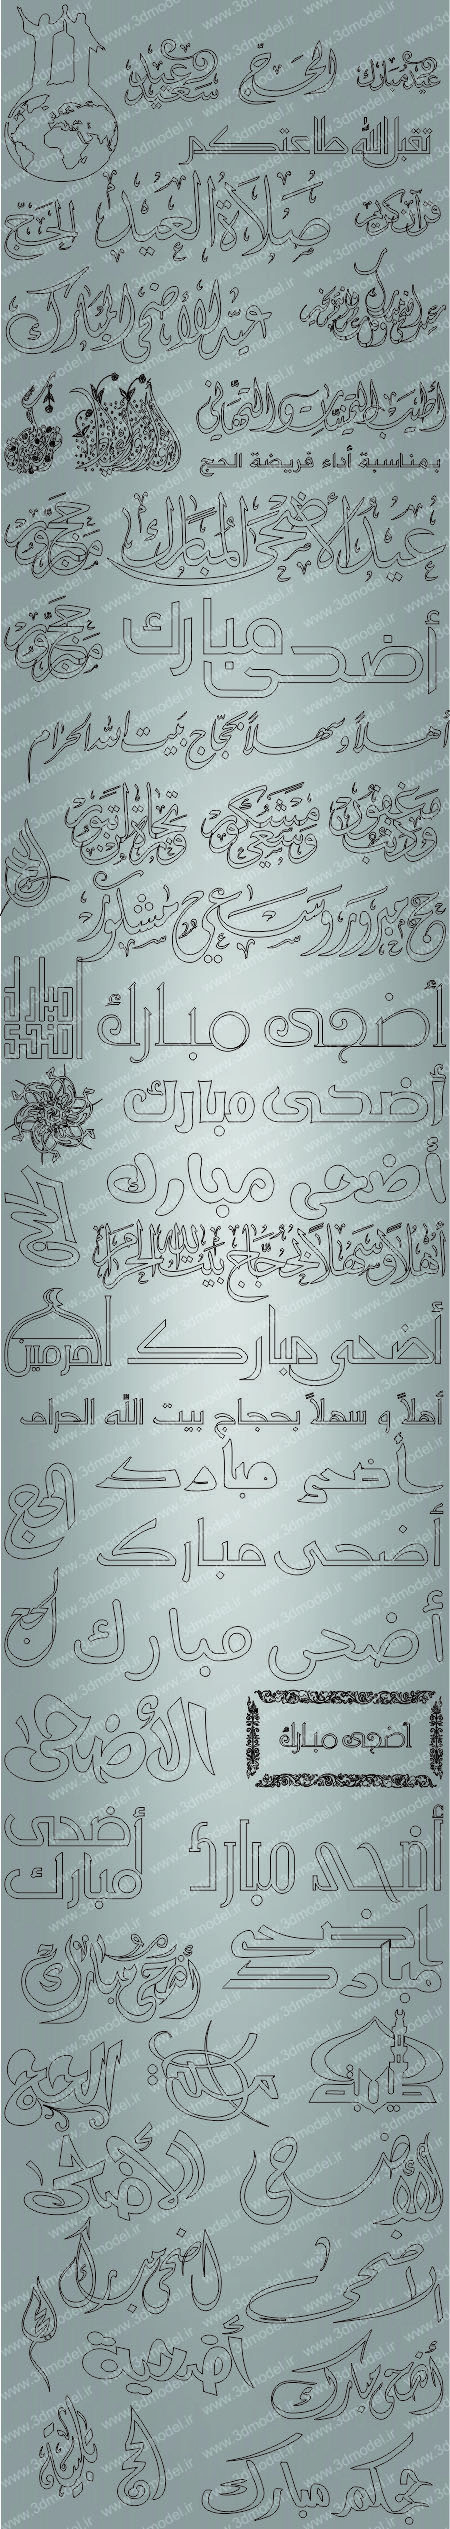 وعيد سعيد
الحجّ
عيد مبارك
تقبل الله طاعتكم
صلاة العيد
الحجّ
قرآن كريم
عيد الأضحى المبارك
أطيب التمنيات والتهاني
بمناسبة أداء فريضة الحج
عيد الأضحى المبارك
أضحى مبارك
أهلاً وسهلاً بحجاج بيت الله الحرام
وذنب مغفور
وسعي مشكور
وتجارة لن تبور
حج مبرور وسعي مشكور
أضحى مبارك
أضحى مبارك
أضحى مبارك
الحج
أهلاً وسهلاً بحجاج بيت الله الحرام
الحرمين
أضحى مبارك
أهلاً و سهلاً بحجاج بيت الله الحرام
أضحى مبارك
الحج
أضحى مبارك
الحج
أضحى مبارك
الأضحى
أضحى مبارك
أضحى مبارك
أضحى مبارك
أضحى مبارك
أضحى مبارك
الحج
الأضحى
اضحى مبارك
الاضحى
أضحية
أضحى مبارك
الحج
حجكم مبارك
www.3dmodel.ir